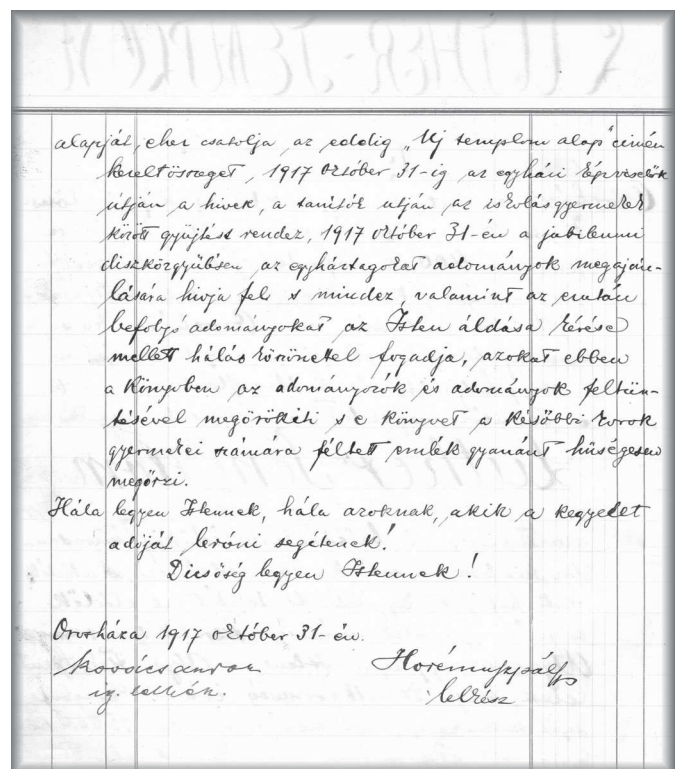 alapját, ehez csatolja az eddig „Uj templom alap" címén
kezelt összeget, 1917 október 31-ig az egyházi képviselők
útján a hivek, a tanítók utján az iskolásgyermekek
között gyűjtést rendez, 1917 október 31-én a jubileumi
diszközgyűlésen az egyháztagokat adományok megaján-
lására hivja fel s mindez, valamint az ezután
befolyó adományokat az Isten áldása kérése
mellett hálás köszönettel fogadja, azokat ebben
a könyvben az adományozók és adományok feltün-
tésével megörökíti s e könyvet a későbbi korok
gyermekei számára féltett emlék gyanánt hűségesen
megőrzi.
Hála legyen Istennek, hála azoknak, akik a kegyelet
adóját leróni segítenek!
Dicsőség legyen Istennek!
Orosháza 1917 október 31-én.
Kovács Andor
ig. lelkész.
Horémusz Pál
lelkész